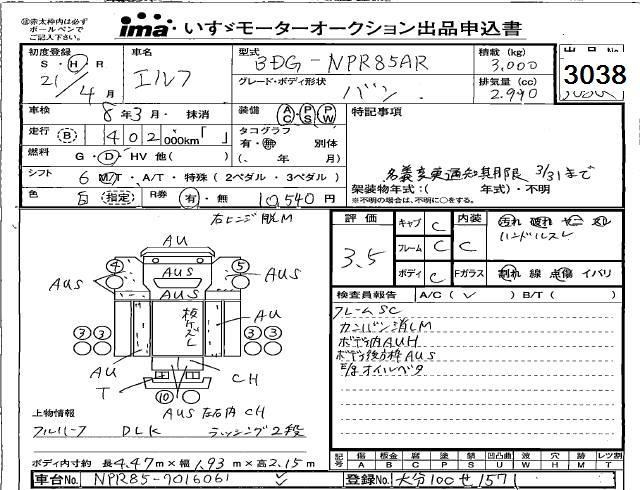 ※赤太枠内は必ず
ボールペンで
ご記入下さい。
ima いすゞモーターオークション出品申込書
初度登録 S・H・R 21/4月
車名 エルフ
型式 BDG-NPR85AR
グレード・ボディ形状 バン
積載(kg) 3,000
排気量(cc) 2.990
出品No. 3038
車検 8年3月・抹消
装備 AC・PS・PW
特記事項
走行 B 402,000km「 」
タコグラフ 有・無 別体
(、 年 月)
燃料 G・D・HV 他( )
シフト 6 M/T・A/T・特殊(2ペダル・3ペダル)
名義変更通知期限 3/31まで
架装物年式:( 年式)・不明
※不明の場合は、不明に○をする。
色 白 指定 R券 有・無 10,540円
右ヒンジ脱M
AU
4 AUS 5
AUS AUS
AUS
3 3 AU 3 3
AU CH
T
10
AUS 左右内 CH
評価 3.5
キャブ C 内装 C
フレーム C
ボディ C Fガラス
汚れ 破れ ヤニ スレ
ハンドルスレ
割れ 線 点傷 イバリ
検査員報告 A/C( ✓ ) B/T( )
フレームSC
カンバン消しM
ボディ内AUH
ボディ後方枠AUS
E/gオイルベタ
上物情報
フルハーフ DLK ラッシング2段
ボディ内寸約 長4.47m×幅1.93m×高2.15m
記号 傷 板金 腐 塗 錆 凹凸曲 波 穴 跡 レツ割
A B C P S U W H M T
車台No. NPR85-7016061
登録No. 大分100せ1571